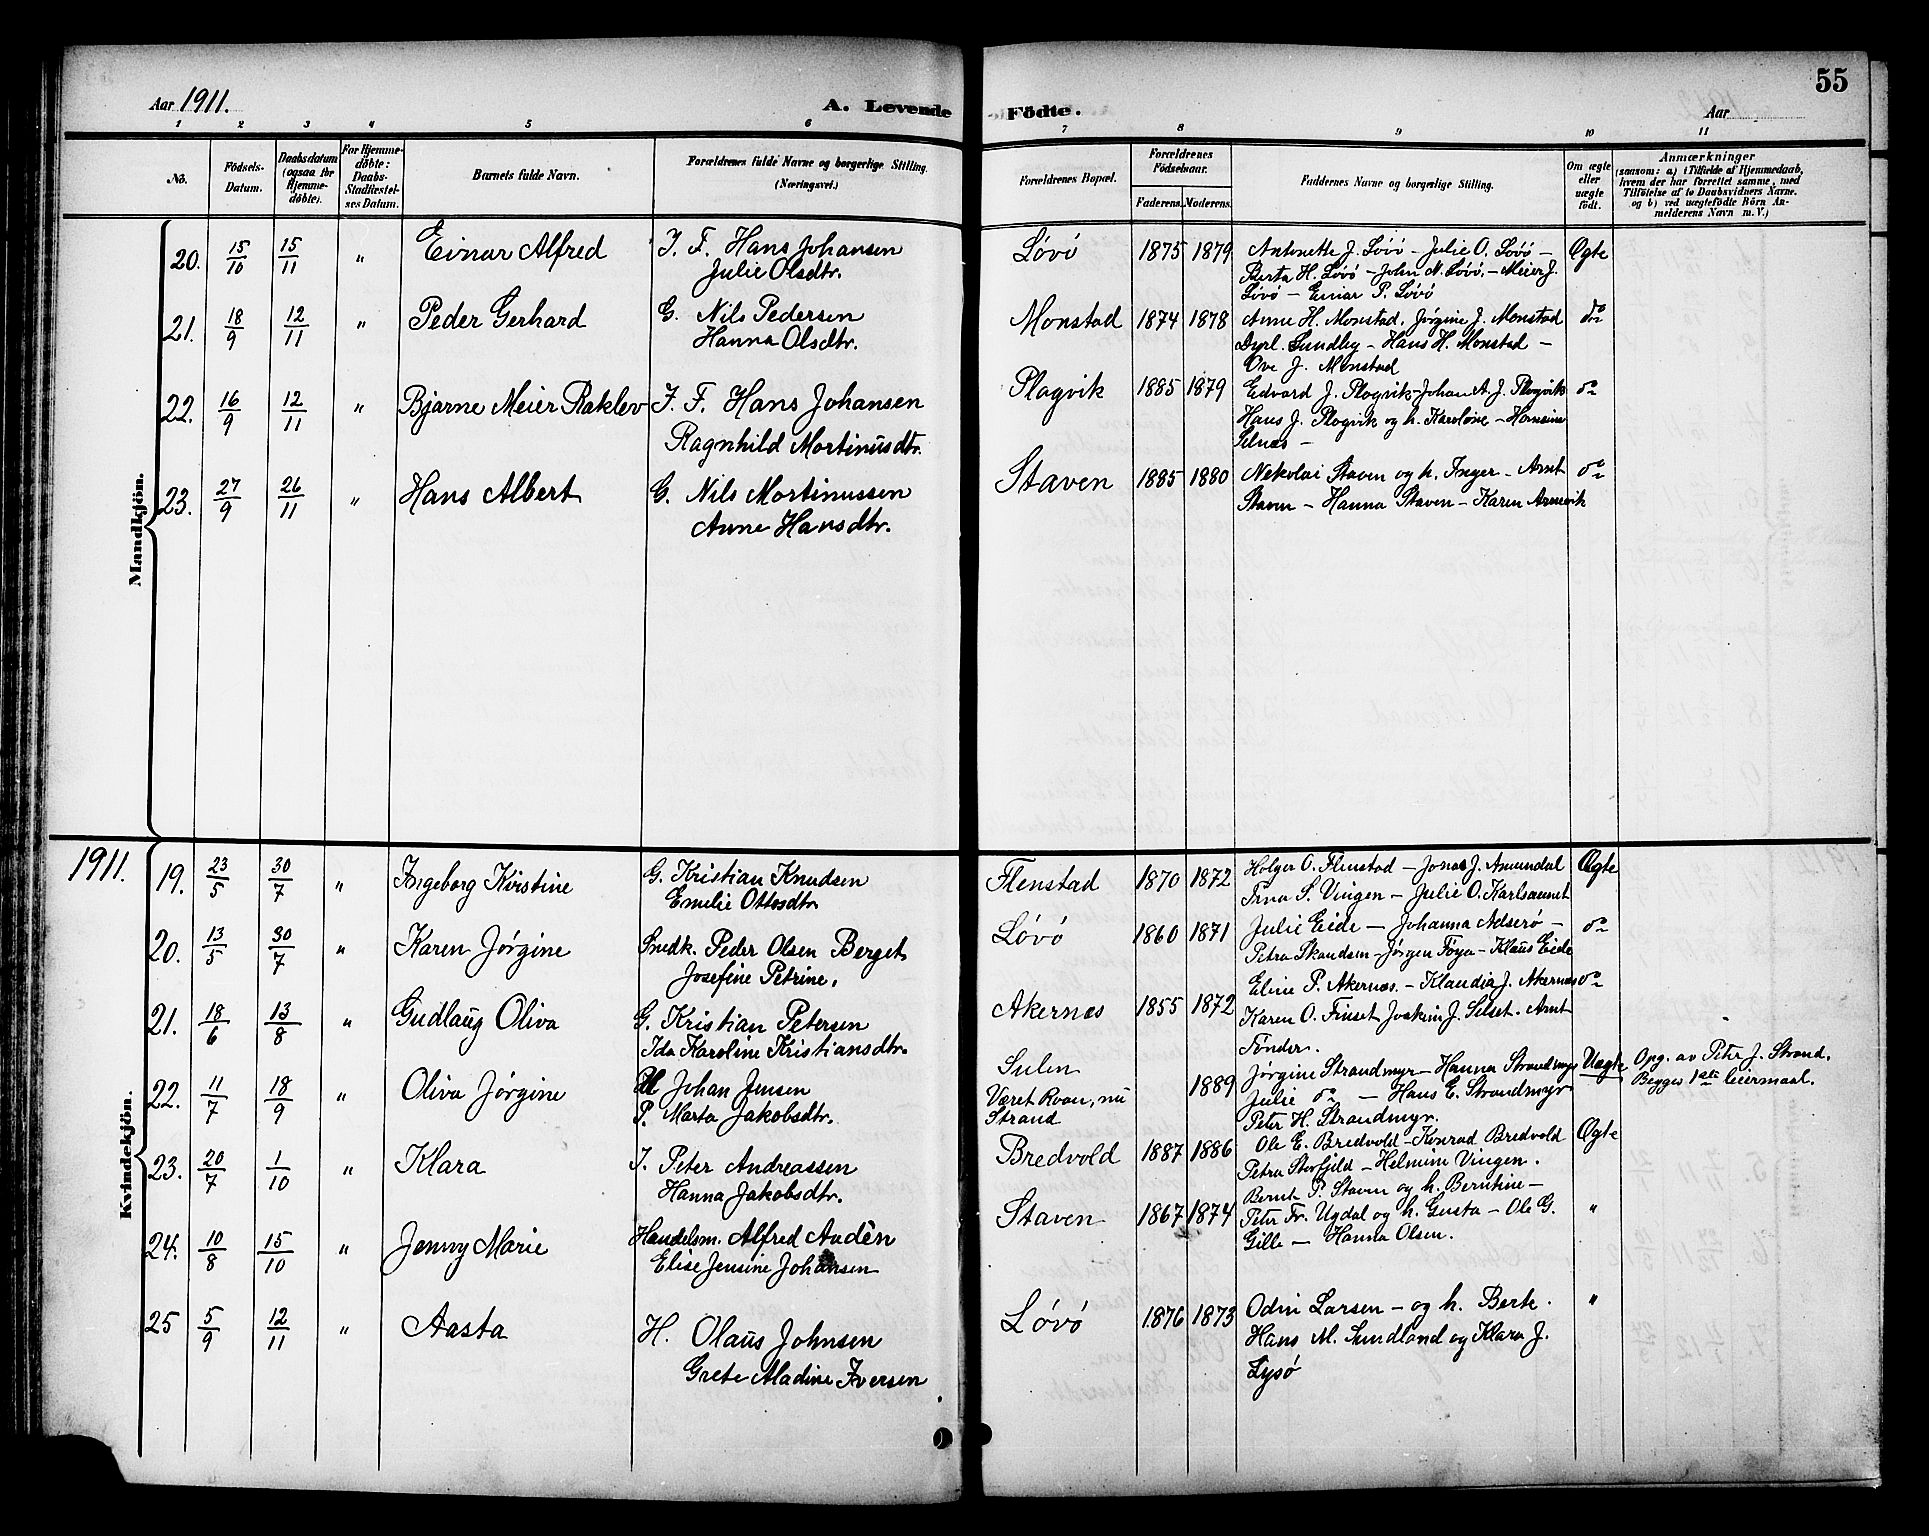 Aar 1911. A. Levende Födte. Aar 55
1 2 3 4 5 6 7 8 9 10 11
No. Födsels-Datum. Daabsdatum (ogsaa for Hjemmedöbte). For Hjemmedöbte: Daabs-Stadfæstelses Datum. Barnets fulde Navn. Forældrenes fulde Navne og borgerlige Stilling. (Næringsvei.) Forældrenes Bopæl. Forældrenes Födselsaar. Faderens. Moderens. Faddernes Navne og borgerlige Stilling. Om ægte eller uægte födt. Anmærkninger (saasom: a) i Tilfælde af Hjemmedaab, hvem der har forrettet samme, med Tilföielse af to Daabsvidners Navne, og b) ved uægtefödte Börn Anmelderens Navn m. V.)
Mandkjön.
20. 15/10 15/11 " Einar Alfred I. F. Hans Johansen Løvø 1875 1879 Antonette J. Løvø - Julie O. Løvø - Ægte
Julie Olsdtr. Berta H. Løvø - John N. Løvø. - Meier J.
Løvø - Einar P. Løvø
21. 18/9 12/11 " Peder Gerhard G. Nils Pedersen Monstad 1874 1878 Anne H. Monstad. Jørgine J. Monstad do
Hanna Olsdtr. Dyrl. Sundby - Hans H. Monstad -
Ove J. Monstad
22. 16/9 12/11 " Bjarne Meier Raklev I. F. Hans Johansen Plagvik 1885 1879 Edvard J. Plagvik - Johan A. J. Plagvik do
Ragnhild Mortinusdtr. Hans J. Plagvik og h. Karoline -
Selnæs -
23. 27/9 26/11 " Hans Albert G. Nils Mortinussen Staven 1885 1880 Nekolai Staven og h. Inger - Arnt do
Anne Hansdtr. Staven - Hanna Staven - Karen Arnevik
1911.
Kvindekjön.
19. 23/5 30/7 " Ingeborg Kirstine G. Kristian Knudsen Flenstad 1870 1872 Holger O. Flenstad - Jonas J. Amundal Ægte
Emelie Ottosdtr S. Vingen - Julie O. Karlsaunet
20. 13/5 30/7 " Karen Jørgine Snedk. Peder Olsen Berget Løvø 1860 1871 Julie Eide - Johanna Adserø - do
Josefine Petrine. Petra Skandsen - Jørgen Føya - Klaus Eide
21. 18/6 13/8 " Gudlaug Oliva G. Kristian Petersen Akernæs 1855 1872 Eline P. Akernæs. - Klaudia J. Akernæs do
Ida Karoline Kristiansdtr. Karen O. Finset Joakim J. Selset. Arnt
Tønder.
22. 11/7 18/9 " Oliva Jørgine Johan Jensen Sulen Jørgine Strandmyr - Hanna Strandmyr Uægte Opg. av Peter J. Strand.
P. Marta Jakobsdtr. Været Roan, nu Strand 1889 Julie do - Hans E. Strandmyr Begges 1ste leiermaal.
Peter H. Strandmyr.
23. 20/7 1/10 " Klara I. Peter Andreassen Bredvold 1887 1886 Ole E. Bredvold - Konrad Bredvold Ægte
Hanna Jakobsdtr. Petra Storfjeld - Helmine Vingen.
24. 10/8 15/10 " Jenny Marie Handelsm. Alfred Audèn Staven 1867 1874 Bernt P. Staven og h. Berntine -
Elise Jensine Johansen Peter Fr. Ugdal og h. Gusta - Ole G. "
Gille - Hanna Olsen.
25 5/9 12/11 " Aasta H. Olaus Johnsen Løvø 1876 1873 Odin Larsen - og h. Berte. "
Grete Madine Iversen Hans M. Sundland og Klara J.
Lysø